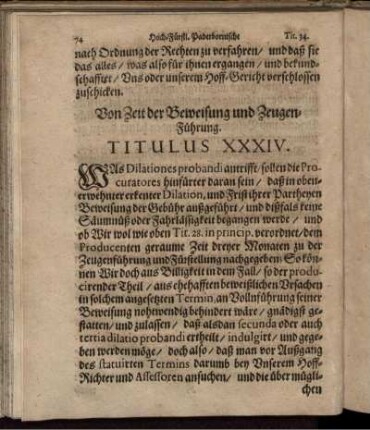 74 Hoch-Fürstl. Paderbornische Tit. 34.
nach Ordnung der Rechten zu verfahren / und daß sie
das alles / was also für ihnen ergangen / und bekund-
schafftet / Uns oder unserem Hoff-Gericht verschlossen
zuschicken.
Von Zeit der Beweisung und Zeugen-
Führung.
TITULUS XXXIV.
WAs Dilationes probandi antrifft / sollen die Pro-
curatores hinfürter daran sein / daß in oben-
erwehnter erkenter Dilation, und Frist ihrer Partheyen
Beweisung der Gebühr außgeführt / und dißfals keine
Säumnüß oder Fahrlässigkeit begangen werde / und
ob Wir wol wie oben Tit. 28. in princip. verordnet / dem
Producenten geraume Zeit dreyer Monaten zu der
Zeugenführung und Fürstellung nachgegeben: So kön-
nen Wir doch aus Billigkeit in dem Fall / so der produ-
cirender Theil / aus ehehafften beweißlichen Ursachen
in solchem angesetzten Termin, an Vollnführung seiner
Beweisung nohtwendig behindert wäre / gnädigst ge-
statten / und zulassen / daß alsdan secunda oder auch
tertia dilatio probandi ertheilt / indulgirt / und gege-
ben werden möge / doch also / daß man vor Außgang
des statuirten Termins darumb bey Unserem Hoff-
Richter und Assessoren ansuchen / und die über müglı-
chen